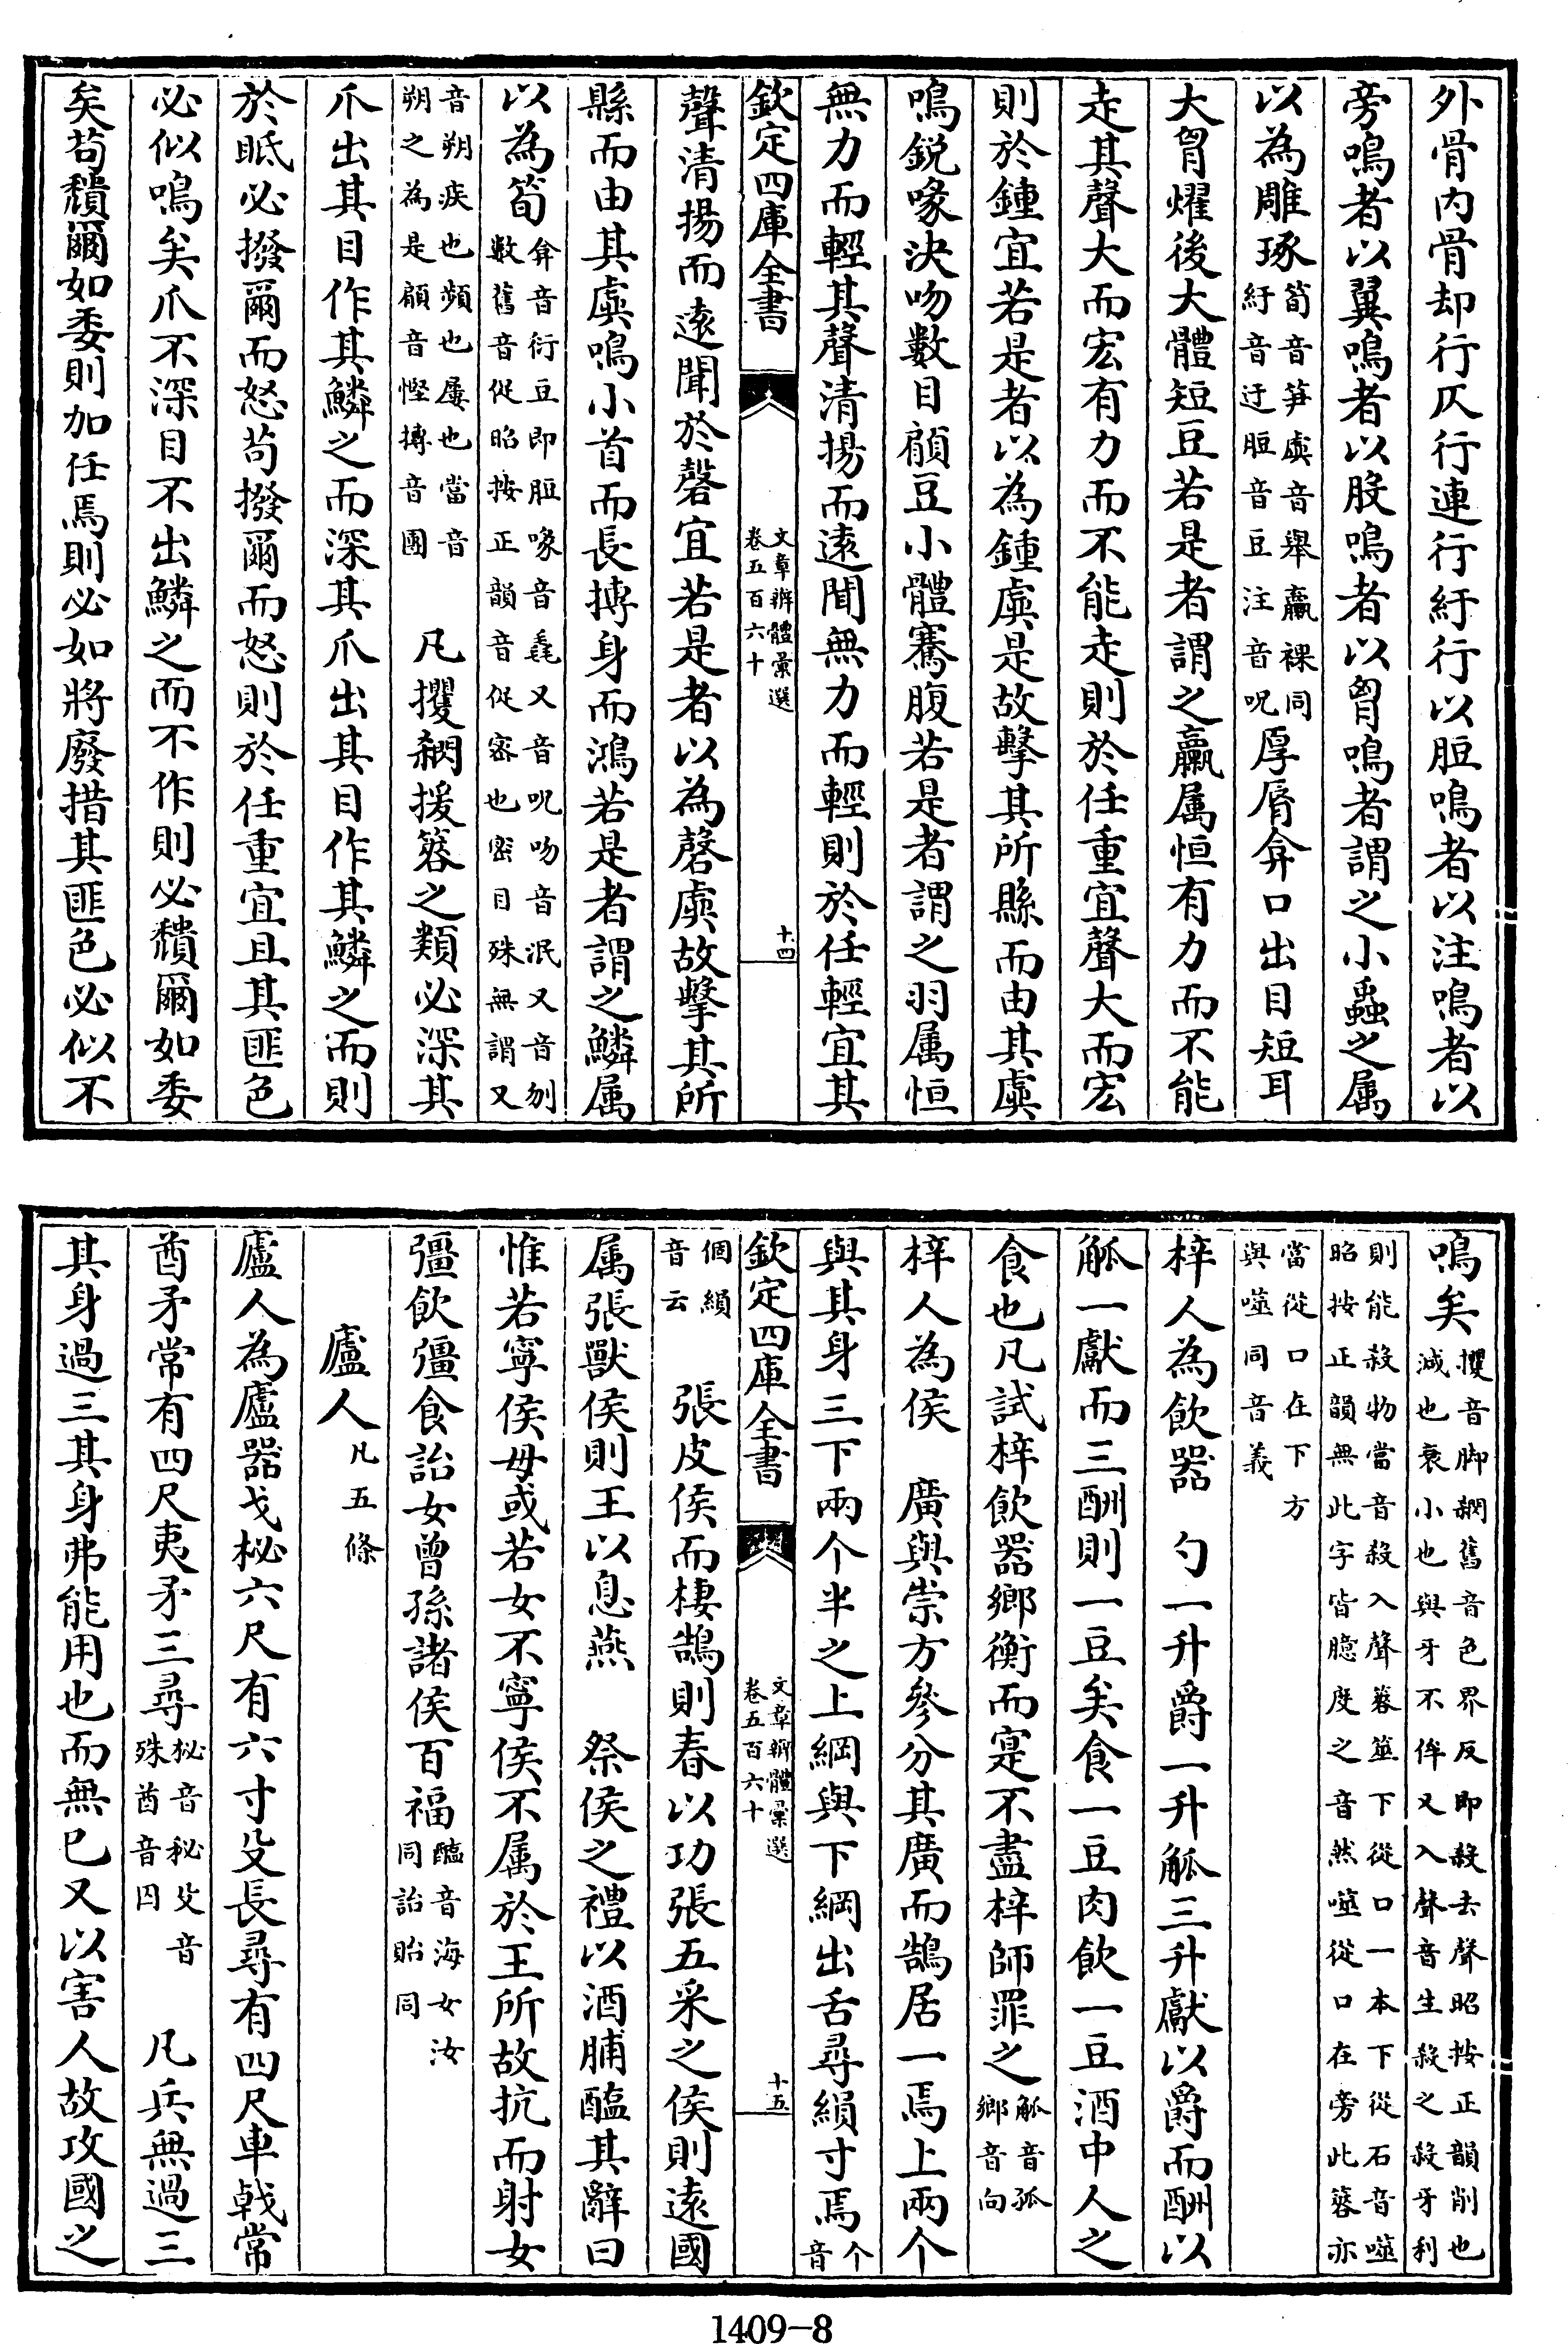 外骨内骨却行仄行連行紆行以脰鳴者以注鳴者以
旁鳴者以翼鳴者以股鳴者以胷鳴者謂之小蟲之属
以為雕琢筍音笋虡音舉臝裸同紆音迂脰音豆注音呪厚脣弇口出目短耳
大胷燿後大體短豆若是者謂之臝属恒有力而不能
走其聲大而宏有力而不能走則於任重宜聲大而宏
則於鍾宜若是者以為鍾虡是故擊其所縣而由其虡
鳴鋭喙決吻數目顧豆小體騫腹若是者謂之羽属恒
無力而輕其聲清揚而遠聞無力而輕則於任輕宜其
欽定四庫全書
文章辨體彙選
卷五百六十
十四
聲清揚而遠聞於磬宜若是者以為磬虡故擊其所
縣而由其虡鳴小首而長摶身而鴻若是者謂之鱗属
以為筍弇音衍豆即脰喙音毳又音呪吻音泯又音刎數舊音促昭按正韻音促密也密目殊無謂又
音朔疾也頻也屢也當音朔之為是顧音慳摶音團　凡攫閷援簭之類必深其
爪出其目作其鱗之而深其爪出其目作其鱗之而則
於眂必撥爾而怒苟撥爾而怒則於任重宜且其匪色
必似鳴矣爪不深目不出鱗之而不作則必穨爾如委
矣苟穨爾如委則加任焉則必如將廢措其匪色必似不
鳴矣攫音脚閷舊音色界反即殺去聲昭按正韻削也減也衰小也與牙不侔又入聲音生殺之殺牙利
則能殺物當音殺入聲簭筮下從口一本下從石音噬昭按正韻無此字皆臆度之音然噬從口在旁此簭亦
當從口在下方與噬同音義
梓人為飲器　勺一升爵一升觚三升獻以爵而酬以
觚一獻而三酬則一豆矣食一豆肉飲一豆酒中人之
食也凡試梓飲器鄉衡而寔不盡梓師罪之觚音孤鄉音向
梓人為侯　廣與崇方參分其廣而鵠居一焉上兩个
與其身三下兩个半之上綱與下綱出舌尋縜寸焉个音
欽定四庫全書
文章辨體彙選
卷五百六十
十五
個縜音云　張皮侯而棲鵠則春以功張五采之侯則遠國
属張獸侯則王以息燕　祭侯之禮以酒脯醢其辭曰
惟若寧侯毋或若女不寧侯不属於王所故抗而射女
彊飲彊食詒女曾孫諸侯百福醢音海女汝同詒貽同
廬人凡五條
廬人為廬器戈柲六尺有六寸殳長尋有四尺車戟常
酋矛常有四尺夷矛三尋柲音秘殳音殊酋音囚　凡兵無過三
其身過三其身弗能用也而無已又以害人故攻國之
1409-8